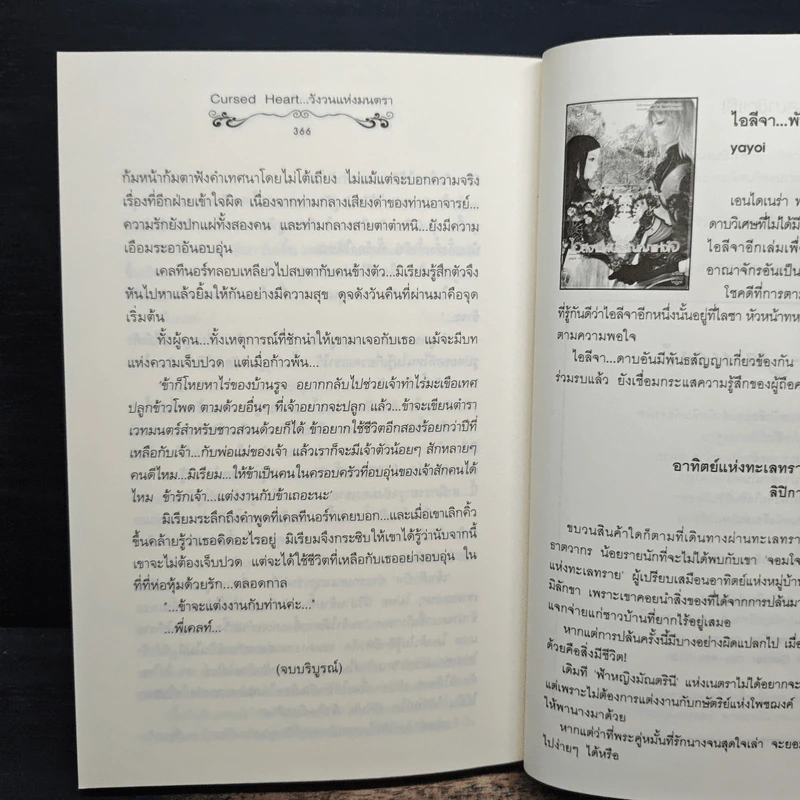 Cursed Heart...วังวนแห่งมนตรา
366
ก้มหน้าก้มตาฟังคำเทศนาโดยไม่โต้เถียง ไม่แม้แต่จะบอกความจริง
เรื่องที่อีกฝ่ายเข้าใจผิด เนื่องจากท่ามกลางเสียงด่าของท่านอาจารย์...
ความรักยังปกแผ่ทั้งสองคน และท่ามกลางสายตาตำหนิ...ยังมีความ
เอือมระอาอันอบอุ่น
เคลทีนอร์ทลอบเหลียวไปสบตากับคนข้างตัว...มิเรียมรู้สึกตัวจึง
หันไปหาแล้วยิ้มให้กันอย่างมีความสุข ดุจดังวันคืนที่ผ่านมาคือจุด
เริ่มต้น
ทั้งผู้คน...ทั้งเหตุการณ์ที่ชักนำให้เขามาเจอกับเธอ แม้จะมีบท
แห่งความเจ็บปวด แต่เมื่อก้าวพ้น...
'ข้าก็โหยหาไร่ของบ้านรูจ อยากกลับไปช่วยเจ้าทำไร่มะเขือเทศ
ปลูกข้าวโพด ตามด้วยอื่นๆ ที่เจ้าอยากจะปลูก แล้ว...ข้าจะเขียนตำรา
เวทมนตร์สำหรับชาวสวนด้วยก็ได้ ข้าอยากใช้ชีวิตอีกสองร้อยกว่าปีที่
เหลือกับเจ้า...กับพ่อแม่ของเจ้า แล้วเราก็จะมีเจ้าตัวน้อยๆ สักหลายๆ
คนดีไหม...มิเรียม...ให้ข้าเป็นคนในครอบครัวที่อบอุ่นของเจ้าสักคนได้
ไหม ข้ารักเจ้า...แต่งงานกับข้าเถอะนะ'
มิเรียมระลึกถึงคำพูดที่เคลทีนอร์ทเคยบอก...และเมื่อเขาเลิกคิ้ว
ขึ้นคล้ายรู้ว่าเธอคิดอะไรอยู่ มิเรียมจึงกระซิบให้เขาได้รู้ว่านับจากนี้
เขาจะไม่ต้องเจ็บปวด แต่จะได้ใช้ชีวิตที่เหลือกับเธออย่างอบอุ่น ใน
ที่ที่ห่อหุ้มด้วยรัก...ตลอดกาล
"...ข้าจะแต่งงานกับท่านค่ะ..."
...พี่เคลท์...
(จบบริบูรณ์)
ไอลีจา...พั
yayoi
เอนไดเนร่า
ดาบวิเศษที่ไม่ได้มี
ไอลีจาอีกเล่มเพื่
อาณาจักรอันเป็น
โชคดีที่การตา
ที่รู้กันดีว่าไอลีจาอีกหนึ่งนั้นอยู่ที่ไลซา หัวหน้าทห
ตามความพอใจ
ไอลีจา...ดาบอันมีพันธสัญญาเกี่ยวข้องกัน
ร่วมรบแล้ว ยังเชื่อมกระแสความรู้สึกของผู้ถือค
อาทิตย์แห่งทะเลทรา
ลิปิกา
ขบวนสินค้าใดก็ตามที่เดินทางผ่านทะเลทรา
ธาตวากร น้อยรายนักที่จะไม่ได้พบกับเขา 'จอมโจ
แห่งทะเลทราย' ผู้เปรียบเสมือนอาทิตย์แห่งหมู่บ้าน
มิลักขา เพราะเขาคอยนำสิ่งของที่ได้จากการปล้นมา
แจกจ่ายแก่ชาวบ้านที่ยากไร้อยู่เสมอ
หากแต่การปล้นครั้งนี้มีบางอย่างผิดแปลกไป เมื่
ด้วยคือสิ่งมีชีวิต!
เดิมที 'ฟ้าหญิงมัณตรินี' แห่งเนตราไม่ได้อยากจะ
แต่เพราะไม่ต้องการแต่งงานกับกษัตริย์แห่งไพชฌงค์
ให้พานางมาด้วย
หากแต่ว่าที่พระคู่หมั้นที่รักนางจนสุดใจเล่า จะยอม
ไปง่ายๆ ได้หรือ